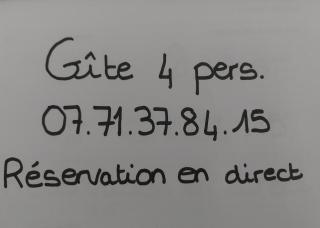 Gîte 4 pers.
07.71.37.84.15
Réservation en direct